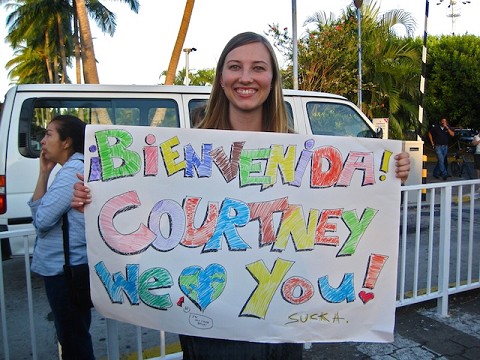 ¡BIENVENIDA!
COURTNEY
We ♥ You!
SUCKA.